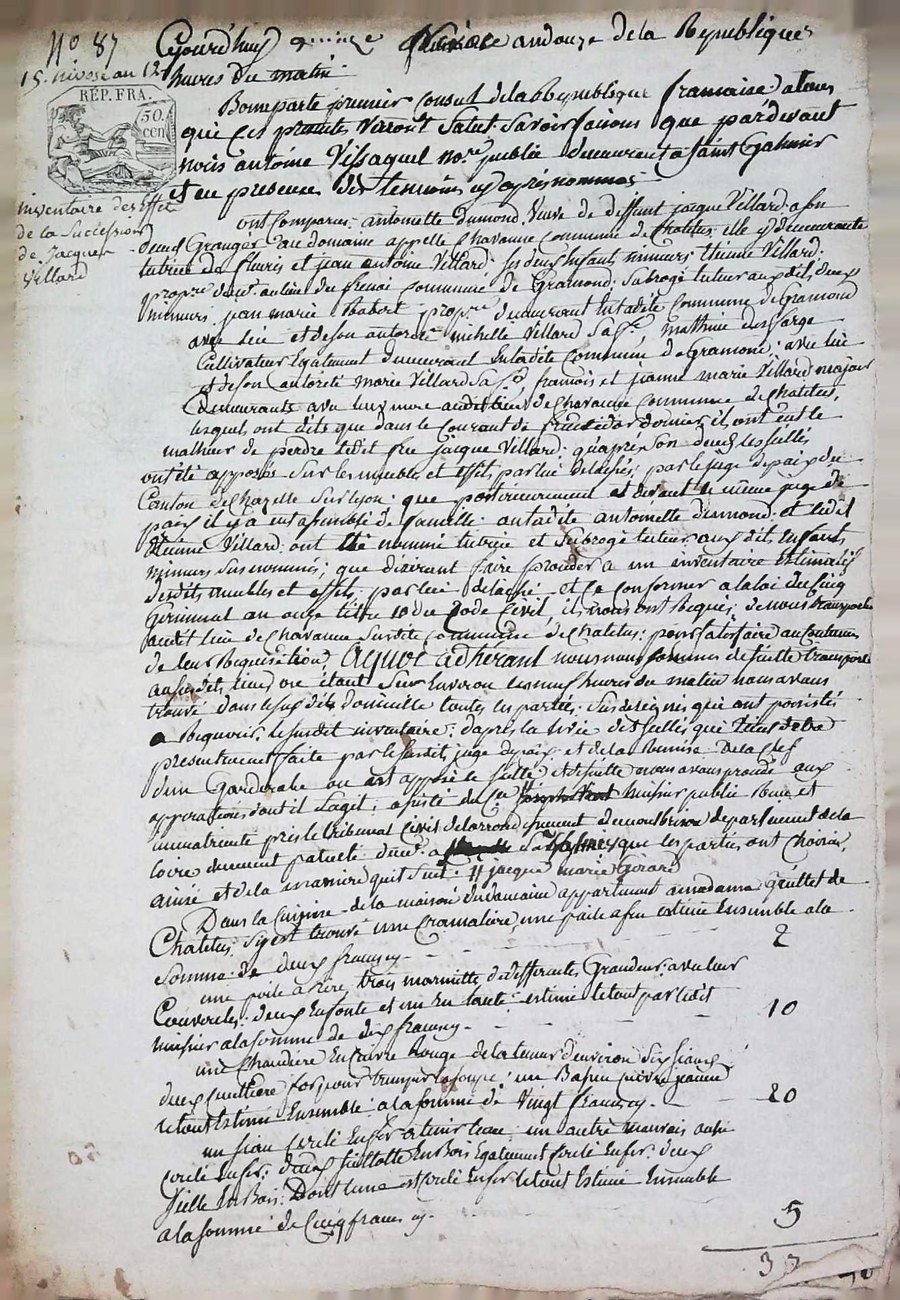 No 87
15. nivose an 12
RÉP. FRA.
50.
cen
inventaire des Effet
de la Sucession
de Jacques
Villard
Cejourd'huy quinze Nivose an douze de la Republique
heures du matin
Bonaparte premier Consul de la Republique francaise atous
qui Ces presentes verront Salut Savoir faisons que pardevant
nous antoine Vissaguel no.re public demeurent a Saint Galmier
et en presence des temoins cy après nommés
ont Comparu antoinette dumond Veuve de deffunt jacque Villard a son
deces Granger au domaine appellé Chavanne commune de Chatelus elle y demeurante
tutrice de fleurie et jean antoine Villard ses deux Enfants mineurs Etienne Villard
propre demt au lieu du commune de Gramond Subrogé tuteur aux dits deux
mineurs jean marie propre demeurant Sur ladite Commune de Gramond
avec lui et de son autorité michelle Villard Sa fe mathieu
Cultivateur Egalement demeurant Sur ladite Commune de Gramond avec lui
et de son autorité marie Villard Sa fe francois et jeanne marie Villard majeur
Demeurants avec leur mere audit lieu de Chavanne commune de Chatelus,
lesquels ont dits que dans le courant de dernier, il ont eut le
malheur de perdre ledit feu jacque Villard qu'après son deces les scellés
ont été apposés Sur les meubles et effets par lui delaissés, par le juge de paix du
Canton de Chazelle Sur lyon que posterieurement et devant le même juge de
paix il y a eut assemblé de famille ou ladite antoinette dumond et ledit
Etienne Villard ont Eté nommé tutrice et Subrogé tuteur aux dits Enfants
mineurs Susnommés; que desirant faire proceder a un inventaire Estimatif
desdits meubles et effets par lui delaissé et Se Conformer a la loi du Cinq
Germinal an onze titre 10 du Code Civil ils nous ont Requis de nous transporter
audit lieu de Chavanne Susdite commune de Chatelus pour Satisfaire au Contenus
de leur Requisition, Aquoi adhérant nous nous Sommes de suitte transporté
au Susdit lieu, ou étant Sur Environ les neuf heures du matin nous avons
trouvé dans le susdits domicille toutes les parties Susdesignés que ont persistés
a Requerir le susdit inventaire d'apres la levée des Scellés qui vient d'etre
presentement faite par le susdit juge de paix et de la Remise de la Clef
d'un Garderobe ou est apposé le Scellé Et de suitte nous avons procedé aux
operations dont il Sagit, assisté du Cen huissier public Recu et
immatriculé pres le tribunal Civil de l'arrondissement de montbrison departement de la
loire duement patenté demt a St Galmier que les parties ont Choisies,
ainsi et de la maniere qui Suit // jacque marie Girard
Dans la Cuisine de la maison du domaine appartenant a madame de
Chatelus Sy est trouvé une Cramaliere, une paile a feu estimé Ensemble a la
Somme de deux francs cy 2
une poile a Rire, trois marmitte de differentes Grandeur avec leur
Couvercle deux En fonte et une En estimé le tout par ledit
huisier a la somme de dix francs cy 10
une Chaudiere En Cuivre Rouge de la teneur d'environ Six Siaux
deux Cuilliere pour tremper la soupe un Basin cuivre jaune
le tout Estimé Ensemble a la somme de Vingt francs cy 20
un Siau Cerclé En fer a tenir leau un autre mauvais aussi
cerclé En fer, deux En Bois Egalement Cerclé En fer deux
Sielle En Bois Dont l'une est Cerclé En fer le tout Estimé Ensemble
a la somme de Cinq francs cy 5
37